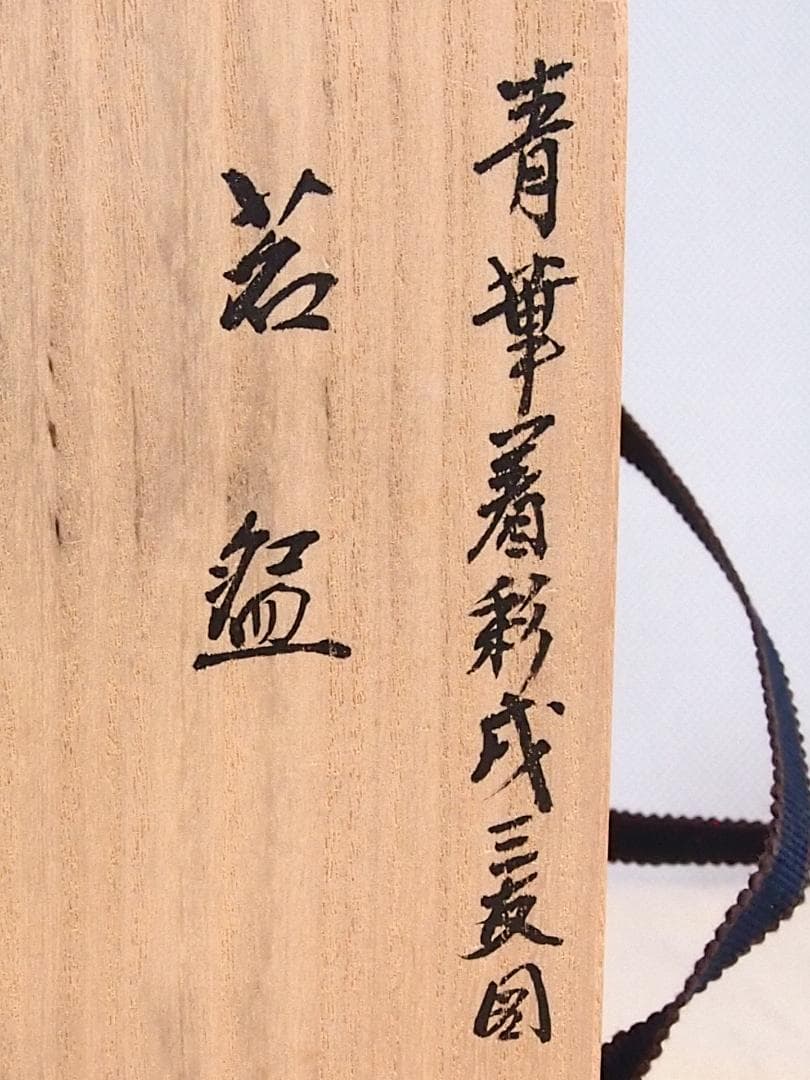 青華着彩成三友図
茗盌